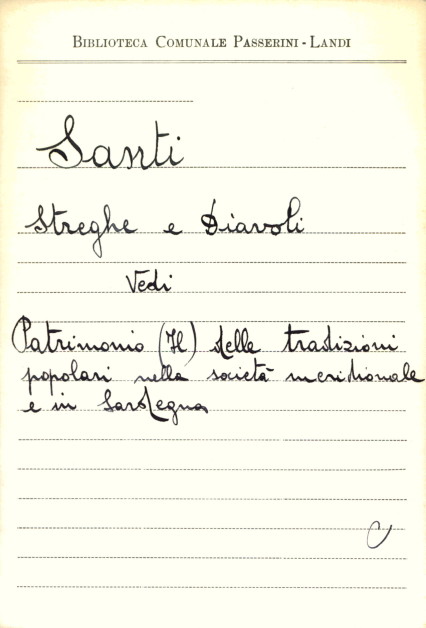 BIBLIOTECA COMUNALE PASSERINI - LANDI
Santi
Streghe e Diavoli
Vedi
Patrimonio (Il) delle tradizioni
popolari nella società meridionale
e in Sardegna
C